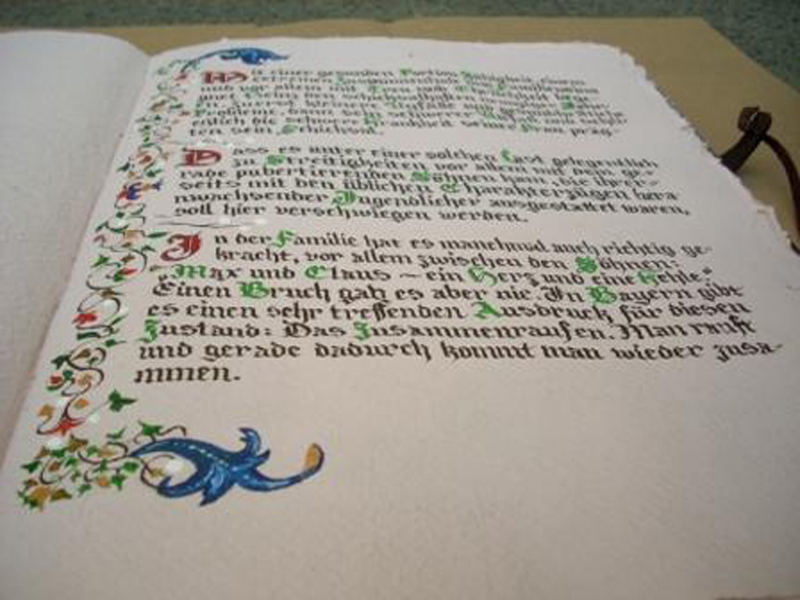 Mit einer gesunden Portion Zähigkeit, einem
extremen Zusammenhalt
und vor allem mit
den
zuerst kleinere
Probleme, dann sein schwerer
endlich die schwere Krankheit seiner Frau präg-
ten sein Schicksal.
Dass es unter einer solchen Last gelegentlich
zu Streitigkeiten vor allem mit den ge-
rade pubertierenden Söhnen kam, die ihrer-
seits mit den üblichen Charakterzügen hera-
nwachsender Jugendlicher ausgestattet waren,
soll hier verschwiegen werden.
In der Familie hat es manchmal auch richtig ge-
kracht, vor allem zwischen den Söhnen:
„Max und Claus ~ ein Herz und eine Kehle."
Einen Bruch gab es aber nie. In Bayern gibt
es einen sehr treffenden Ausdruck für diesen
Zustand: Das Zusammenraufen. Man rauft
und gerade dadurch kommt man wieder zusa-
mmen.